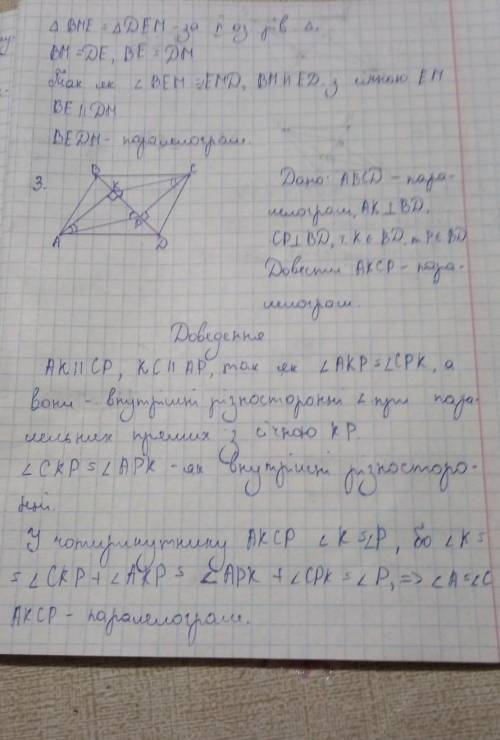 Δ BME = Δ DEM - за
BM = DE, BE = DM
Так як ∠ BEM = EMD, BM ∥ ED з січною EM
BE ∥ DM
BEDM - паралелограм.
3.
B
C
K
P
A
D
Дано: ABCD - пара-
лелограм, AK ⊥ BD,
CP ⊥ BD, т. K ∈ BD, т. P ∈ BD
Довести AKCP - пара-
лелограм.
Доведення
AK ∥ CP, KC ∥ AP, так як ∠AKP = ∠CPK, а
вони - внутрішні різносторонні ∠ при пара-
лельних прямих з січною KP.
∠CKP = ∠APK - як внутрішні різносторо-
нні.
У чотирикутнику AKCP ∠K = ∠P, бо ∠K =
= ∠CKP + ∠AKP = ∠APK + ∠CPK = ∠P, => ∠A = ∠C
AKCP - паралелограм.